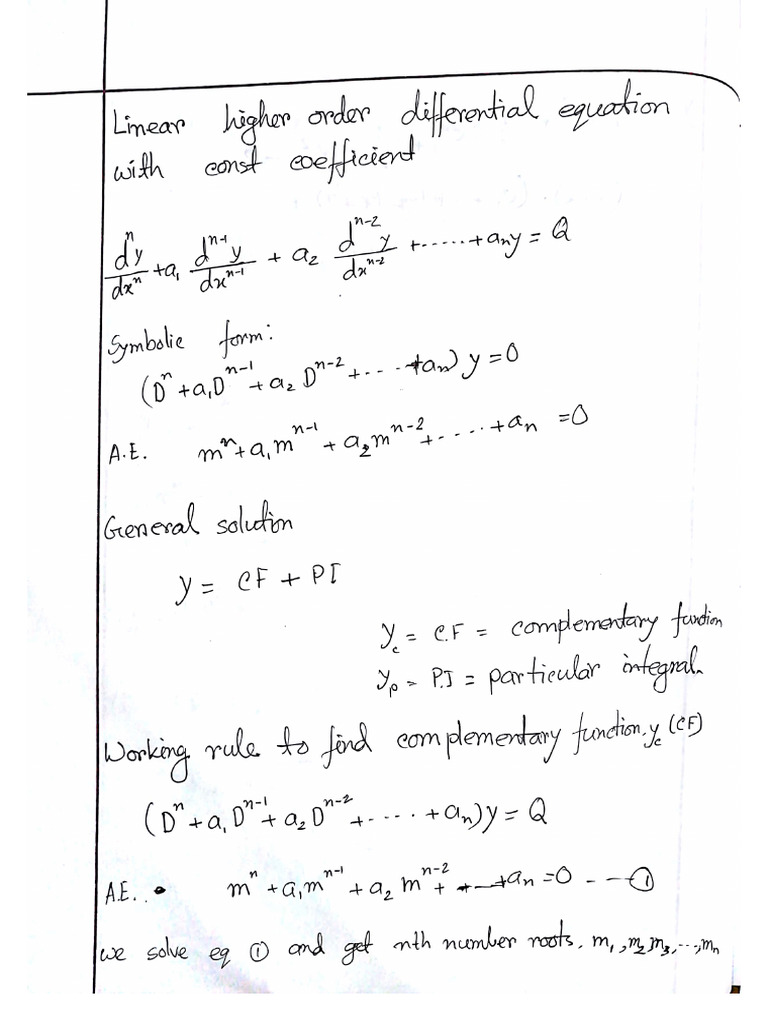 Linear higher order differential equation
with const coefficient
dⁿy/dxⁿ + a₁ dⁿ⁻¹y/dxⁿ⁻¹ + a₂ dⁿ⁻²y/dxⁿ⁻² + ...... + aₙy = Q
Symbolic form:
(Dⁿ + a₁Dⁿ⁻¹ + a₂Dⁿ⁻² + .... + aₙ) y = 0
A.E. mⁿ + a₁mⁿ⁻¹ + a₂mⁿ⁻² + .... + aₙ = 0
General solution
y = CF + PI
y_c = C.F = complementary function
y_p = P.I = particular integral.
Working rule to find complementary function, y_c (CF)
(Dⁿ + a₁Dⁿ⁻¹ + a₂Dⁿ⁻² + ..... + aₙ)y = Q
A.E. mⁿ + a₁mⁿ⁻¹ + a₂mⁿ⁻² + ... + aₙ = 0 --- ①
we solve eq ① and get nth number roots, m₁, m₂, m₃, ..., mₙ